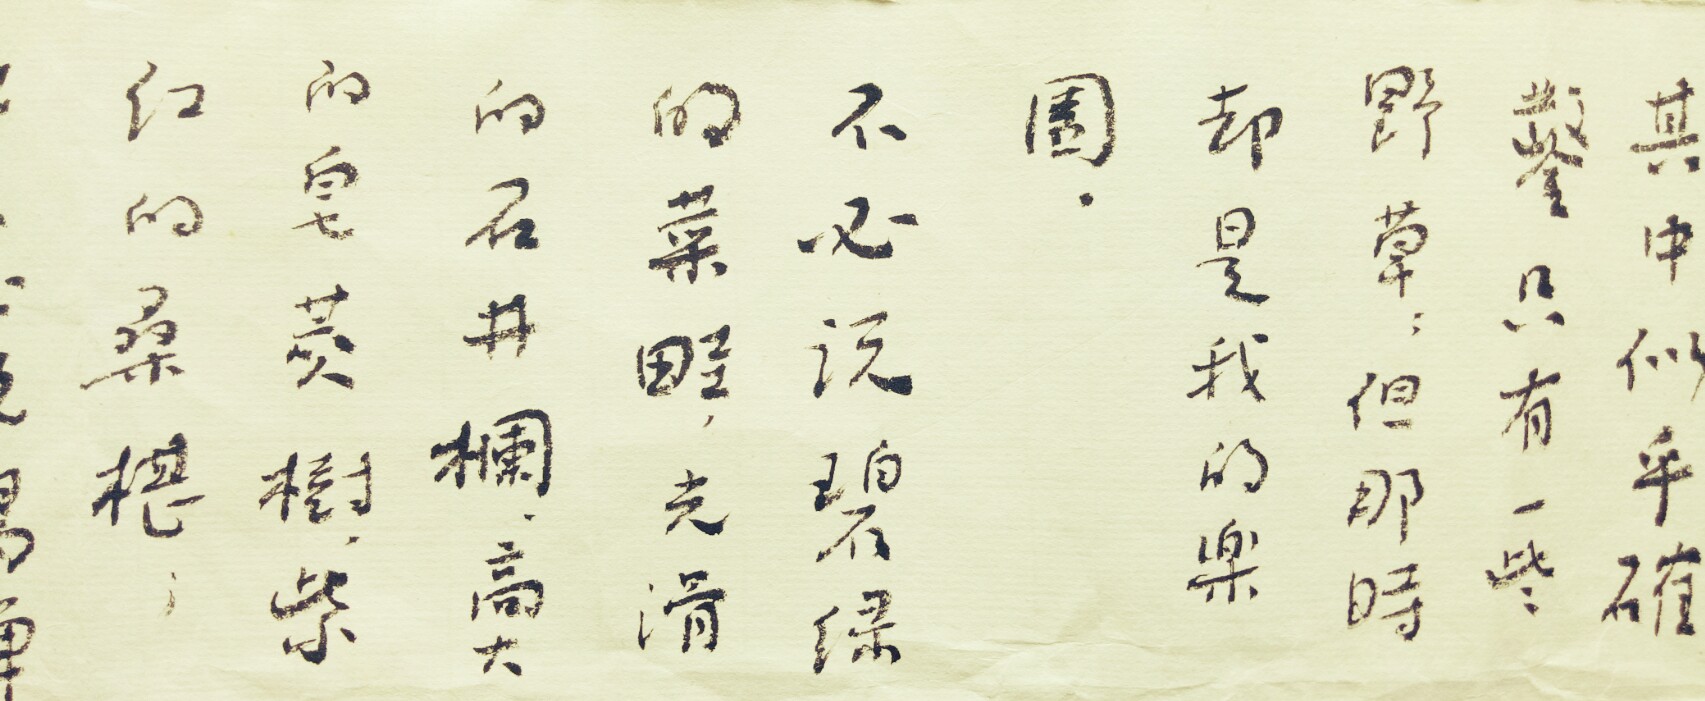 其中似乎確
鑿只有一些
野草；但那時
却是我的樂
園．
不必説碧绿
的菜畦，光滑
的石井欄，高大
的皂荚樹，紫
红的桑椹；